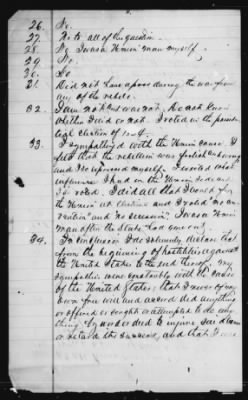 26. No.
27. No to all of the question.
28. No I was a Union man myself.
29. No.
30. No
31. Did not have a pass during the war from
any of the rebels.
32. I am not & was not. Do not know
whether I did or not. I voted in the presiden
tial election of
33. I sympathized with the Union cause. I
felt that the rebellion was foolish & wrong
and I so expressed myself. I exerted what
influence I had on the Union side and
so voted. I did all that I could for
the Union at elections and I voted "no con-
vention" and "no secession". I was a Union
man after the State had gone out.
34. In conclusion I do solemnly declare that
from the beginning of hostilities against
the United States to the end thereof, my
sympathies were constantly with the cause
of the United States; that I never of my
own free will and accord did anything
or offered or sought or attempted to do any
thing by word or deed to injure said cause
or retard its success, and that I was